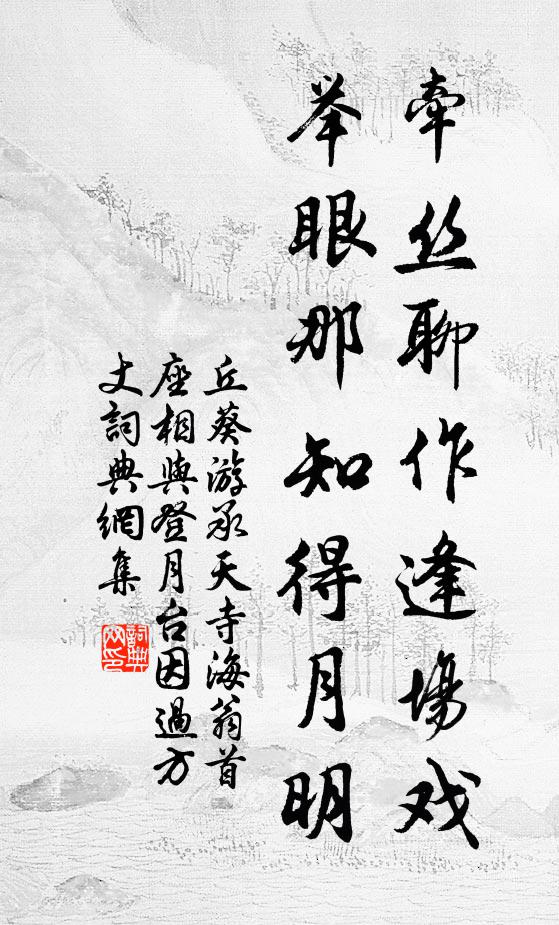 牽丝聊作逢場戏
举眼那知得月明
丘葵游承天寺海翁首
座相與登月台因過方
丈詞典網集
詞典
网印